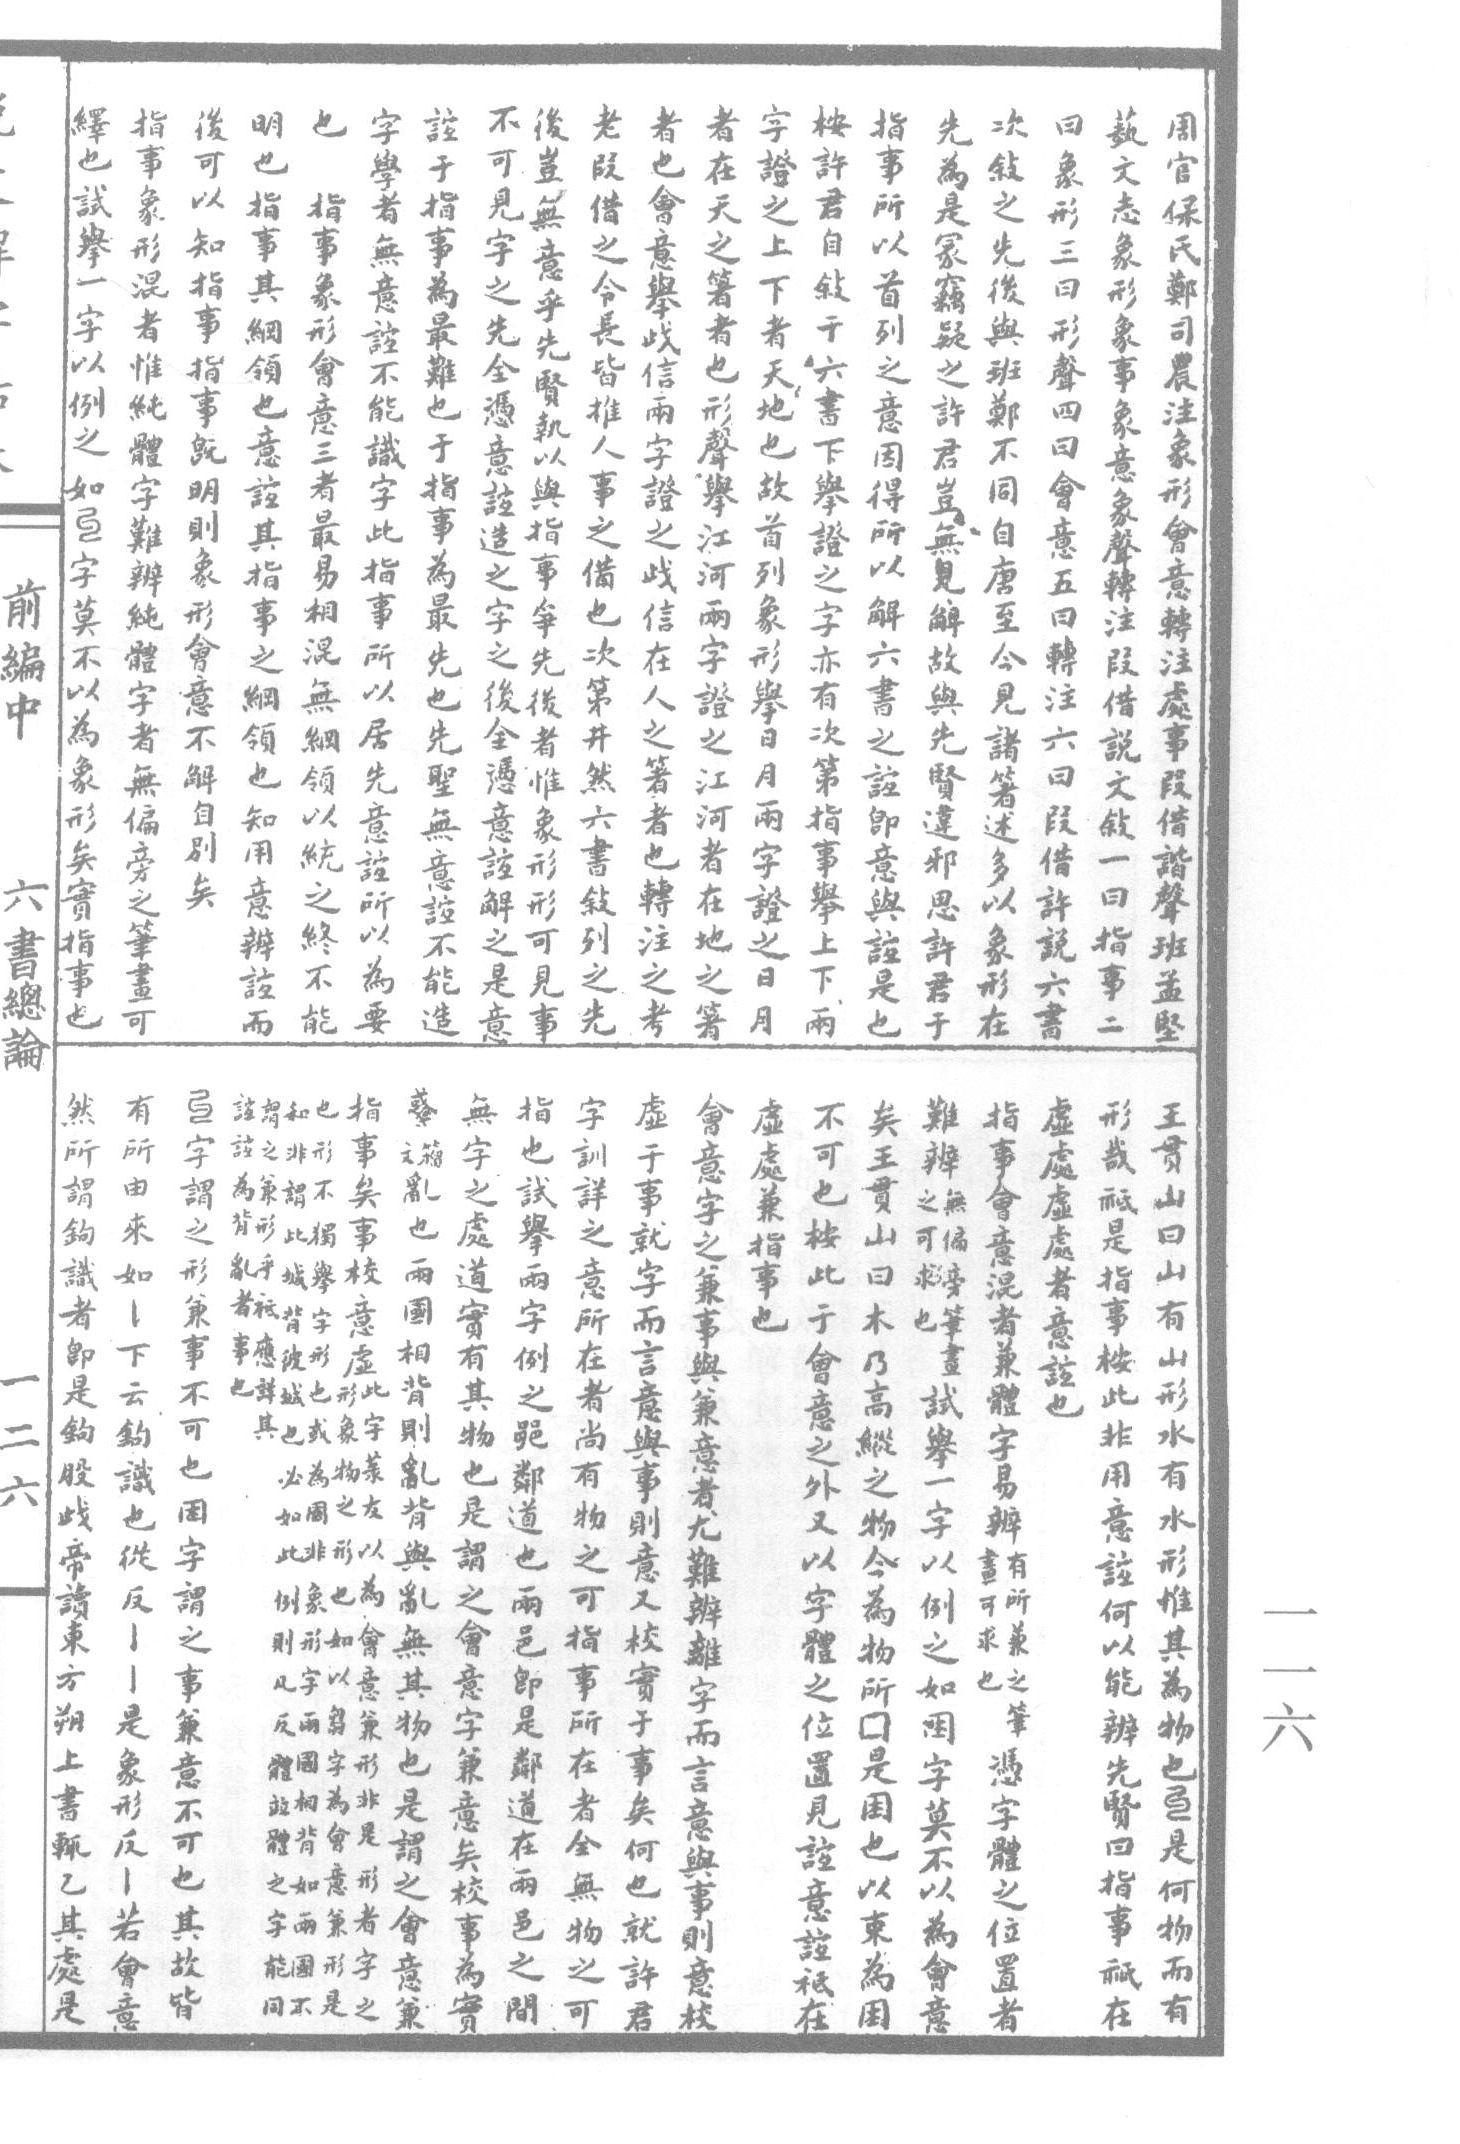 周官保氏鄭司農注象形會意轉注處事叚借諧聲班孟堅
藝文志象形象事象意象聲轉注叚借說文敘一曰指事二
曰象形三曰形聲四曰會意五曰轉注六曰叚借許說六書
次敘之先後與班鄭不同自唐至今見諸箸述多以象形在
先為是冢竊疑之許君豈無見解故與先賢違邪思許君于
指事所以首列之意因得所以解六書之誼卽意與誼是也
桉許君自敘于六書下舉證之字亦有次第指事舉上下兩
字證之上下者天地也故首列象形舉日月兩字證之日月
者在天之箸者也形聲舉江河兩字證之江河者在地之箸
者也會意舉武信兩字證之武信在人之箸者也轉注之考
老叚借之令長皆推人事之備也次第井然六書敘列之先
後豈無意乎先賢執以與指事爭先後者惟象形形可見事
不可見字之先全憑意誼造之字之後全憑意誼解之是意
誼于指事為最難也于指事為最先也先聖無意誼不能造
字學者無意誼不能識字此指事所以居先意誼所以為要
也　指事象形會意三者最易相混無綱領以統之終不能
明也指事其綱領也意誼其指事之綱領也知用意辨誼而
後可以知指事指事旣明則象形會意不解自別矣
指事象形混者惟純體字難辨純體字者無偏旁之筆畫可
繹也試舉一字以例之如字莫不以為象形矣實指事也
王貫山曰山有山形水有水形惟其為物也是何物而有
形哉祗是指事桉此非用意誼何以能辨先賢曰指事祗在
虛處虛處者意誼也
指事會意混者兼體字易辨有所兼之筆畫可求也憑字體之位置者
難辨無偏旁筆畫之可求也試舉一字以例之如困字莫不以為會意
矣王貫山曰木乃高縱之物今為物所囗是困也以束為困
不可也桉此于會意之外又以字體之位置見誼意誼祗在
虛處兼指事也
會意字之兼事與兼意者尤難辨離字而言意與事則意校
虛于事就字而言意與事則意又校實于事矣何也就許君
字訓詳之意所在者尚有物之可指事所在者全無物之可
指也試舉兩字例之䣈鄰道也兩邑卽是鄰道在兩邑之間
無字之處道實有其物也是謂之會意字兼意矣校事為實
籀文亂也兩國相背則亂背與亂無其物也是謂之會意兼
指事矣事校意虛此字菉友以為會意兼形非是形者字之形象物之形也如以字為會意兼形是
也形不獨舉字形也或為國非象形字兩國相背如兩國不
和非謂此域背彼域也必如此例則凡反體竝體之字能同
謂之兼形乎祗應詳其誼誼為背亂者事也
字謂之形兼事不可也困字謂之事兼意不可也其故皆
有所由來如亅下云鉤識也從反亅亅是象形反亅若會意
然所謂鉤識者卽是鉤股武帝讀東方朔上書輒乙其處是
前編中
六書總論
一二六
一一六